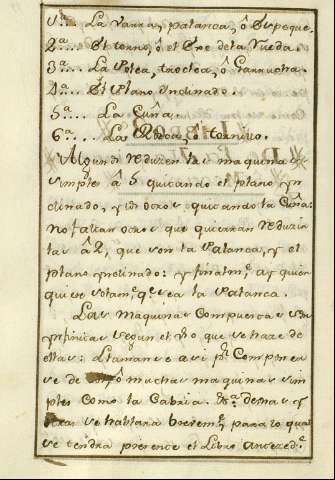 1ª.... La Varra, palanca, ô Espeque.
2ª.... El torno, ô el Exe de la Rueda.
3ª.... La Polea, troclea, ô Garrucha.
4ª.... El Plano Inclinado.
5ª.... La Cuña.
6ª.... La Rosca, ô tornillo.
Algunos reduzen las maquinas
simples â 5 quitando el plano yn
clinado, y los otros, quitando la Cuña:
No faltan otros que quieran reduzir
las â 2, que son la Palanca, y el
plano ynclinado: y finalmᵉ. ay quien
quiere solamᵉ. qᵉ sea la Palanca.
Las Maquinas Compuestas son
ynfinitas segun el Vso, que se haze de
ellas: llamanse asi pʳ Componer
se de muchas maquinas sim
ples como la Cabria. &ª. destas y
otras se hablarà brevemᵉ, para lo qual
se tendrà presente el Libro antecedᵉ.